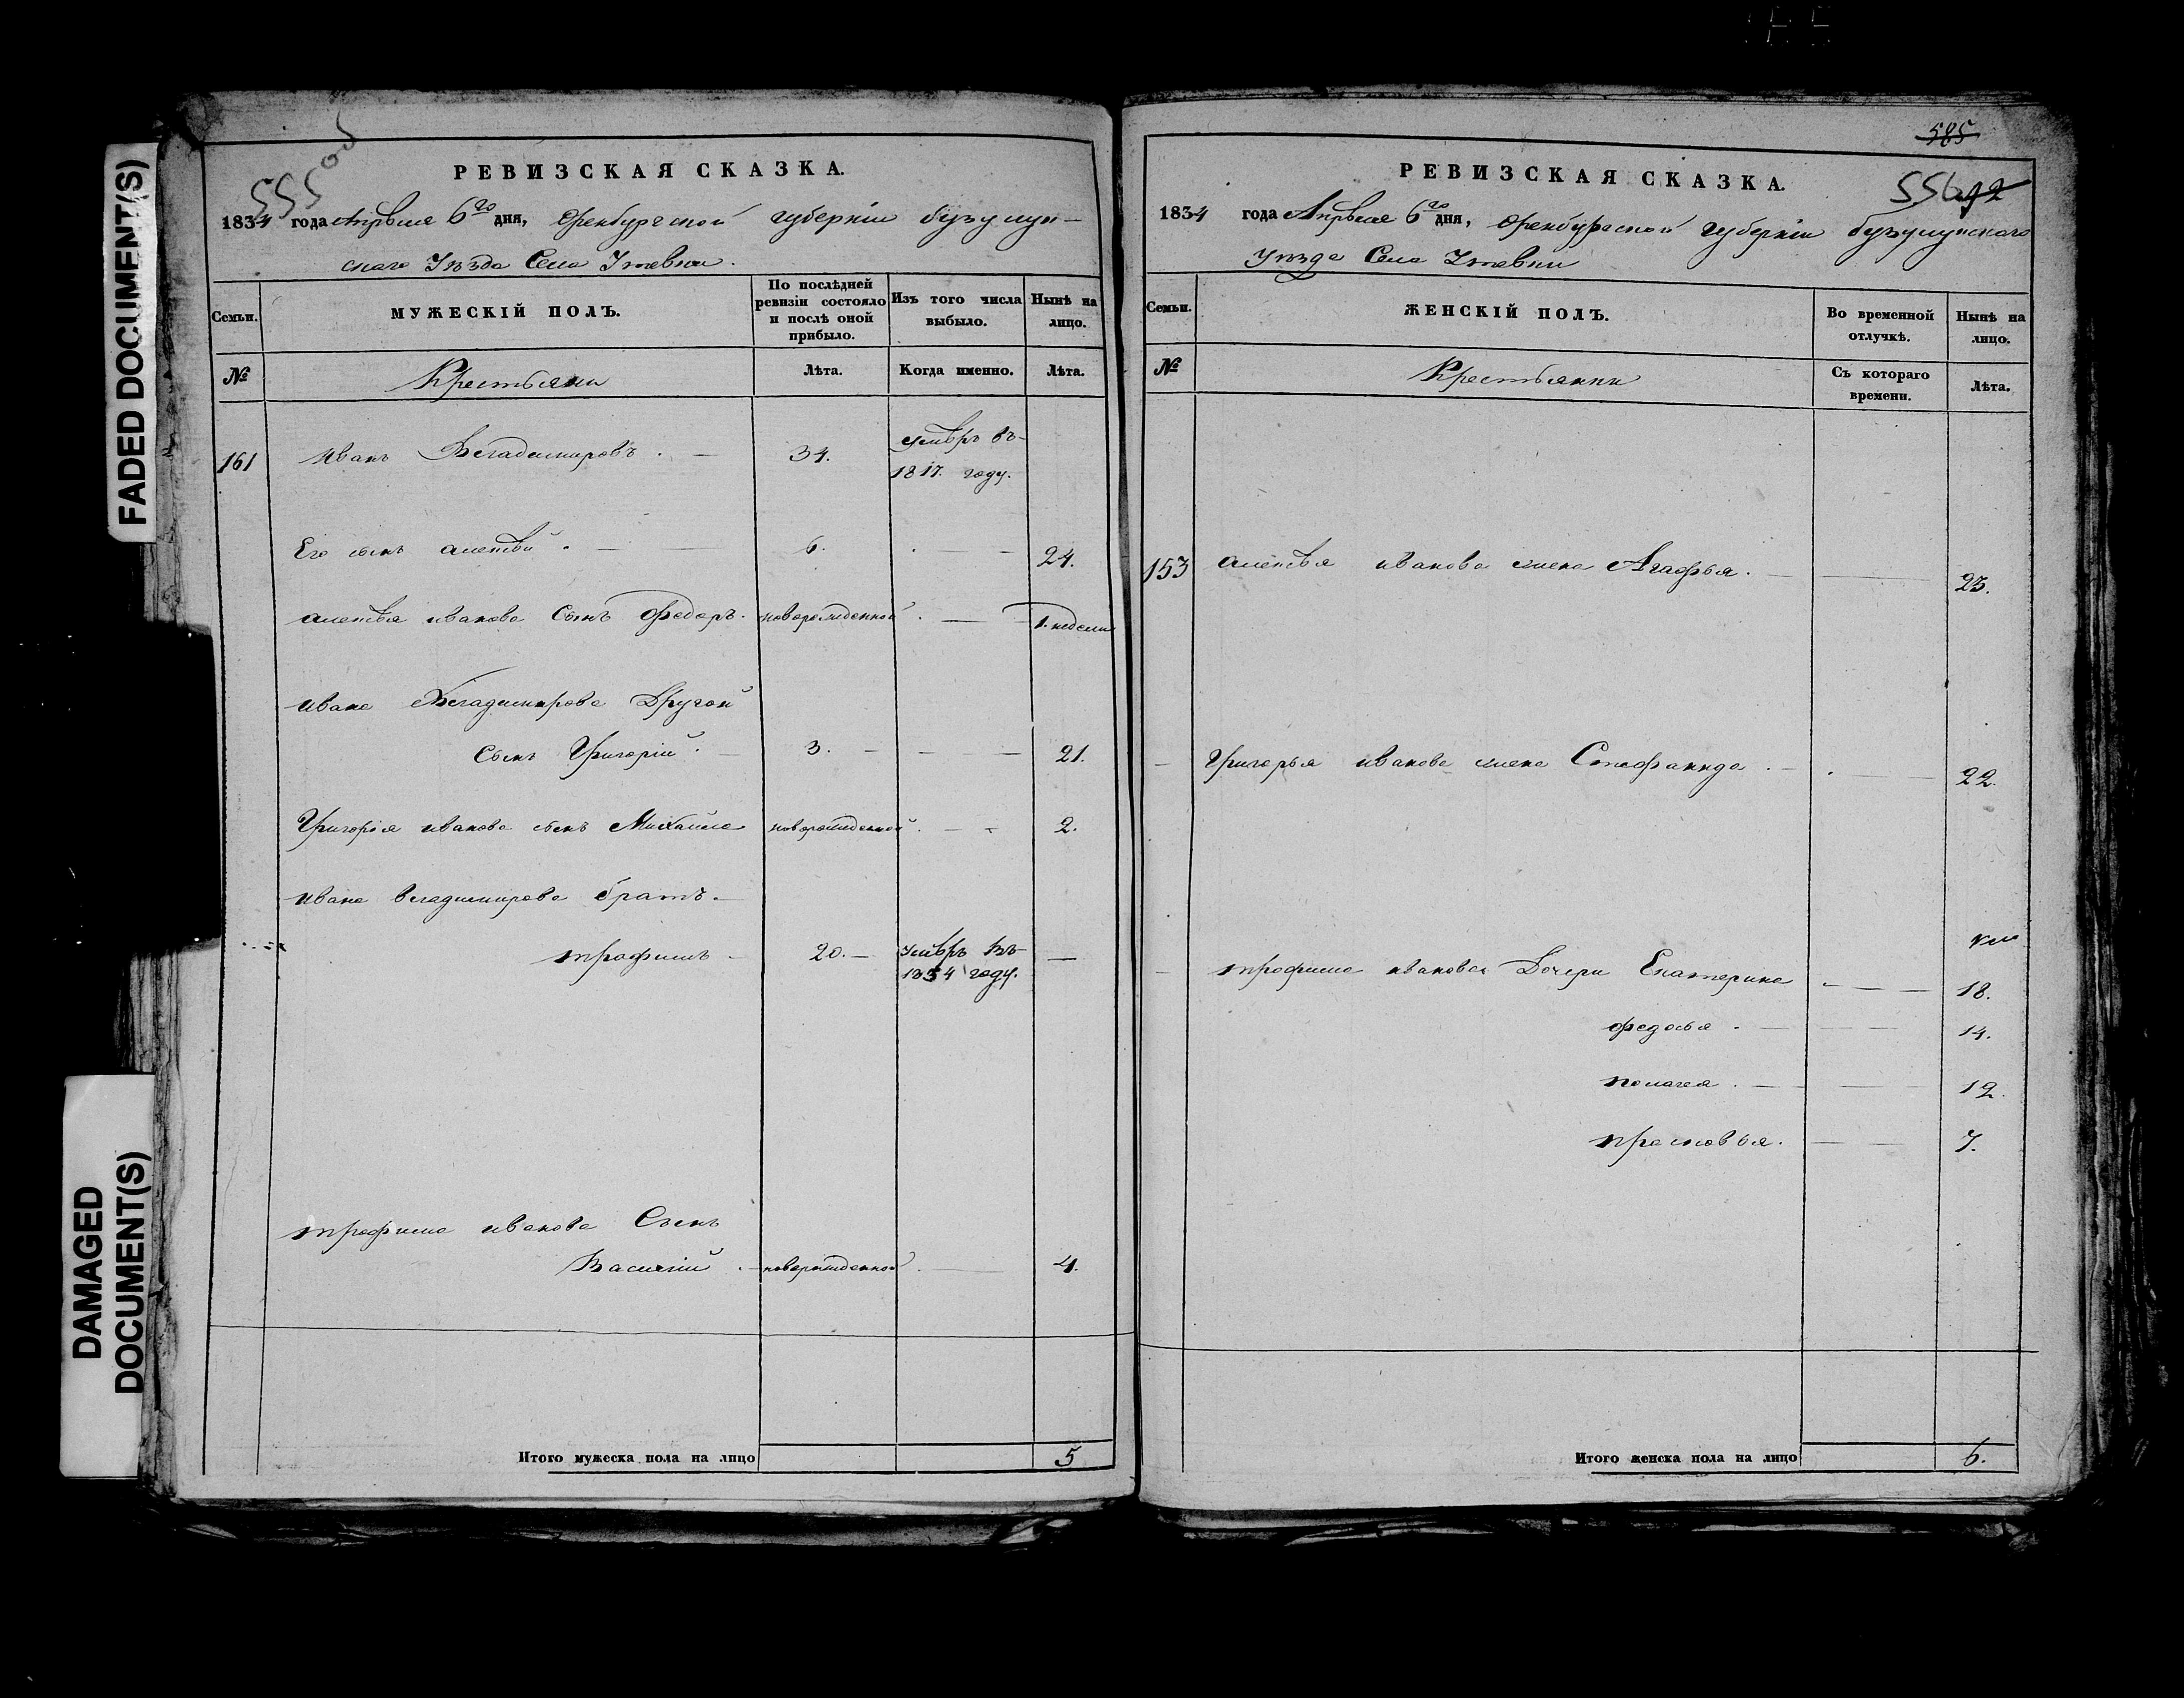 FADED DOCUMENT(S)
DAMAGED
DOCUMENT(S)
555 об
РЕВИЗСКАЯ СКАЗКА.
1834 года Апреля 6го дня, Оренбургской губернии бузулук-
скаго Уезда Села Утевки.
Семьи.
МУЖЕСКІЙ ПОЛЪ.
По послѣдней ревизіи состояло и послѣ оной прибыло.
Изъ того числа выбыло.
Нынѣ на лицо.
№
Крестьяни
Лѣта.
Когда именно.
Лѣта.
161 иванъ Владимировъ . — 34. умвръ въ
1817. году.
Его сынъ алексѣй . — — 6. . — 24.
алексѣя иванова Сынъ Федоръ . новорожденной . — 1. недели
ивана Владимирова Другой
Сынъ Григорій . — 3. — — — 21.
Григорія иванова сынъ Михайла новорожденной . — - 2.
ивана владимирова братъ. —
трофимъ — 20. — умвръ въ —
1834 году.
трофима иванова Сынъ
Василій . — новорожденной . — 4.
Итого мужеска пола на лицо 5
585
556 92
РЕВИЗСКАЯ СКАЗКА.
1834 года Апрѣля 6го дня, Оренбургской губерніи бузулукского
уезда Села Утевки
Семьи.
ЖЕНСКІЙ ПОЛЪ.
Во временной отлучкѣ.
Нынѣ на лицо.
№
Крестьянки
Съ котораго времени.
Лѣта.
153 алексѣя иванова жена Агафья . — — 23.
— Григорья иванова жена Степанида . — . — 22.
— трофима иванова Дочери Екатерина . — — 18.
федосья . — — 14.
пелагея . — — 12.
прасковья . — — 7.
Итого женска пола на лицо 6.